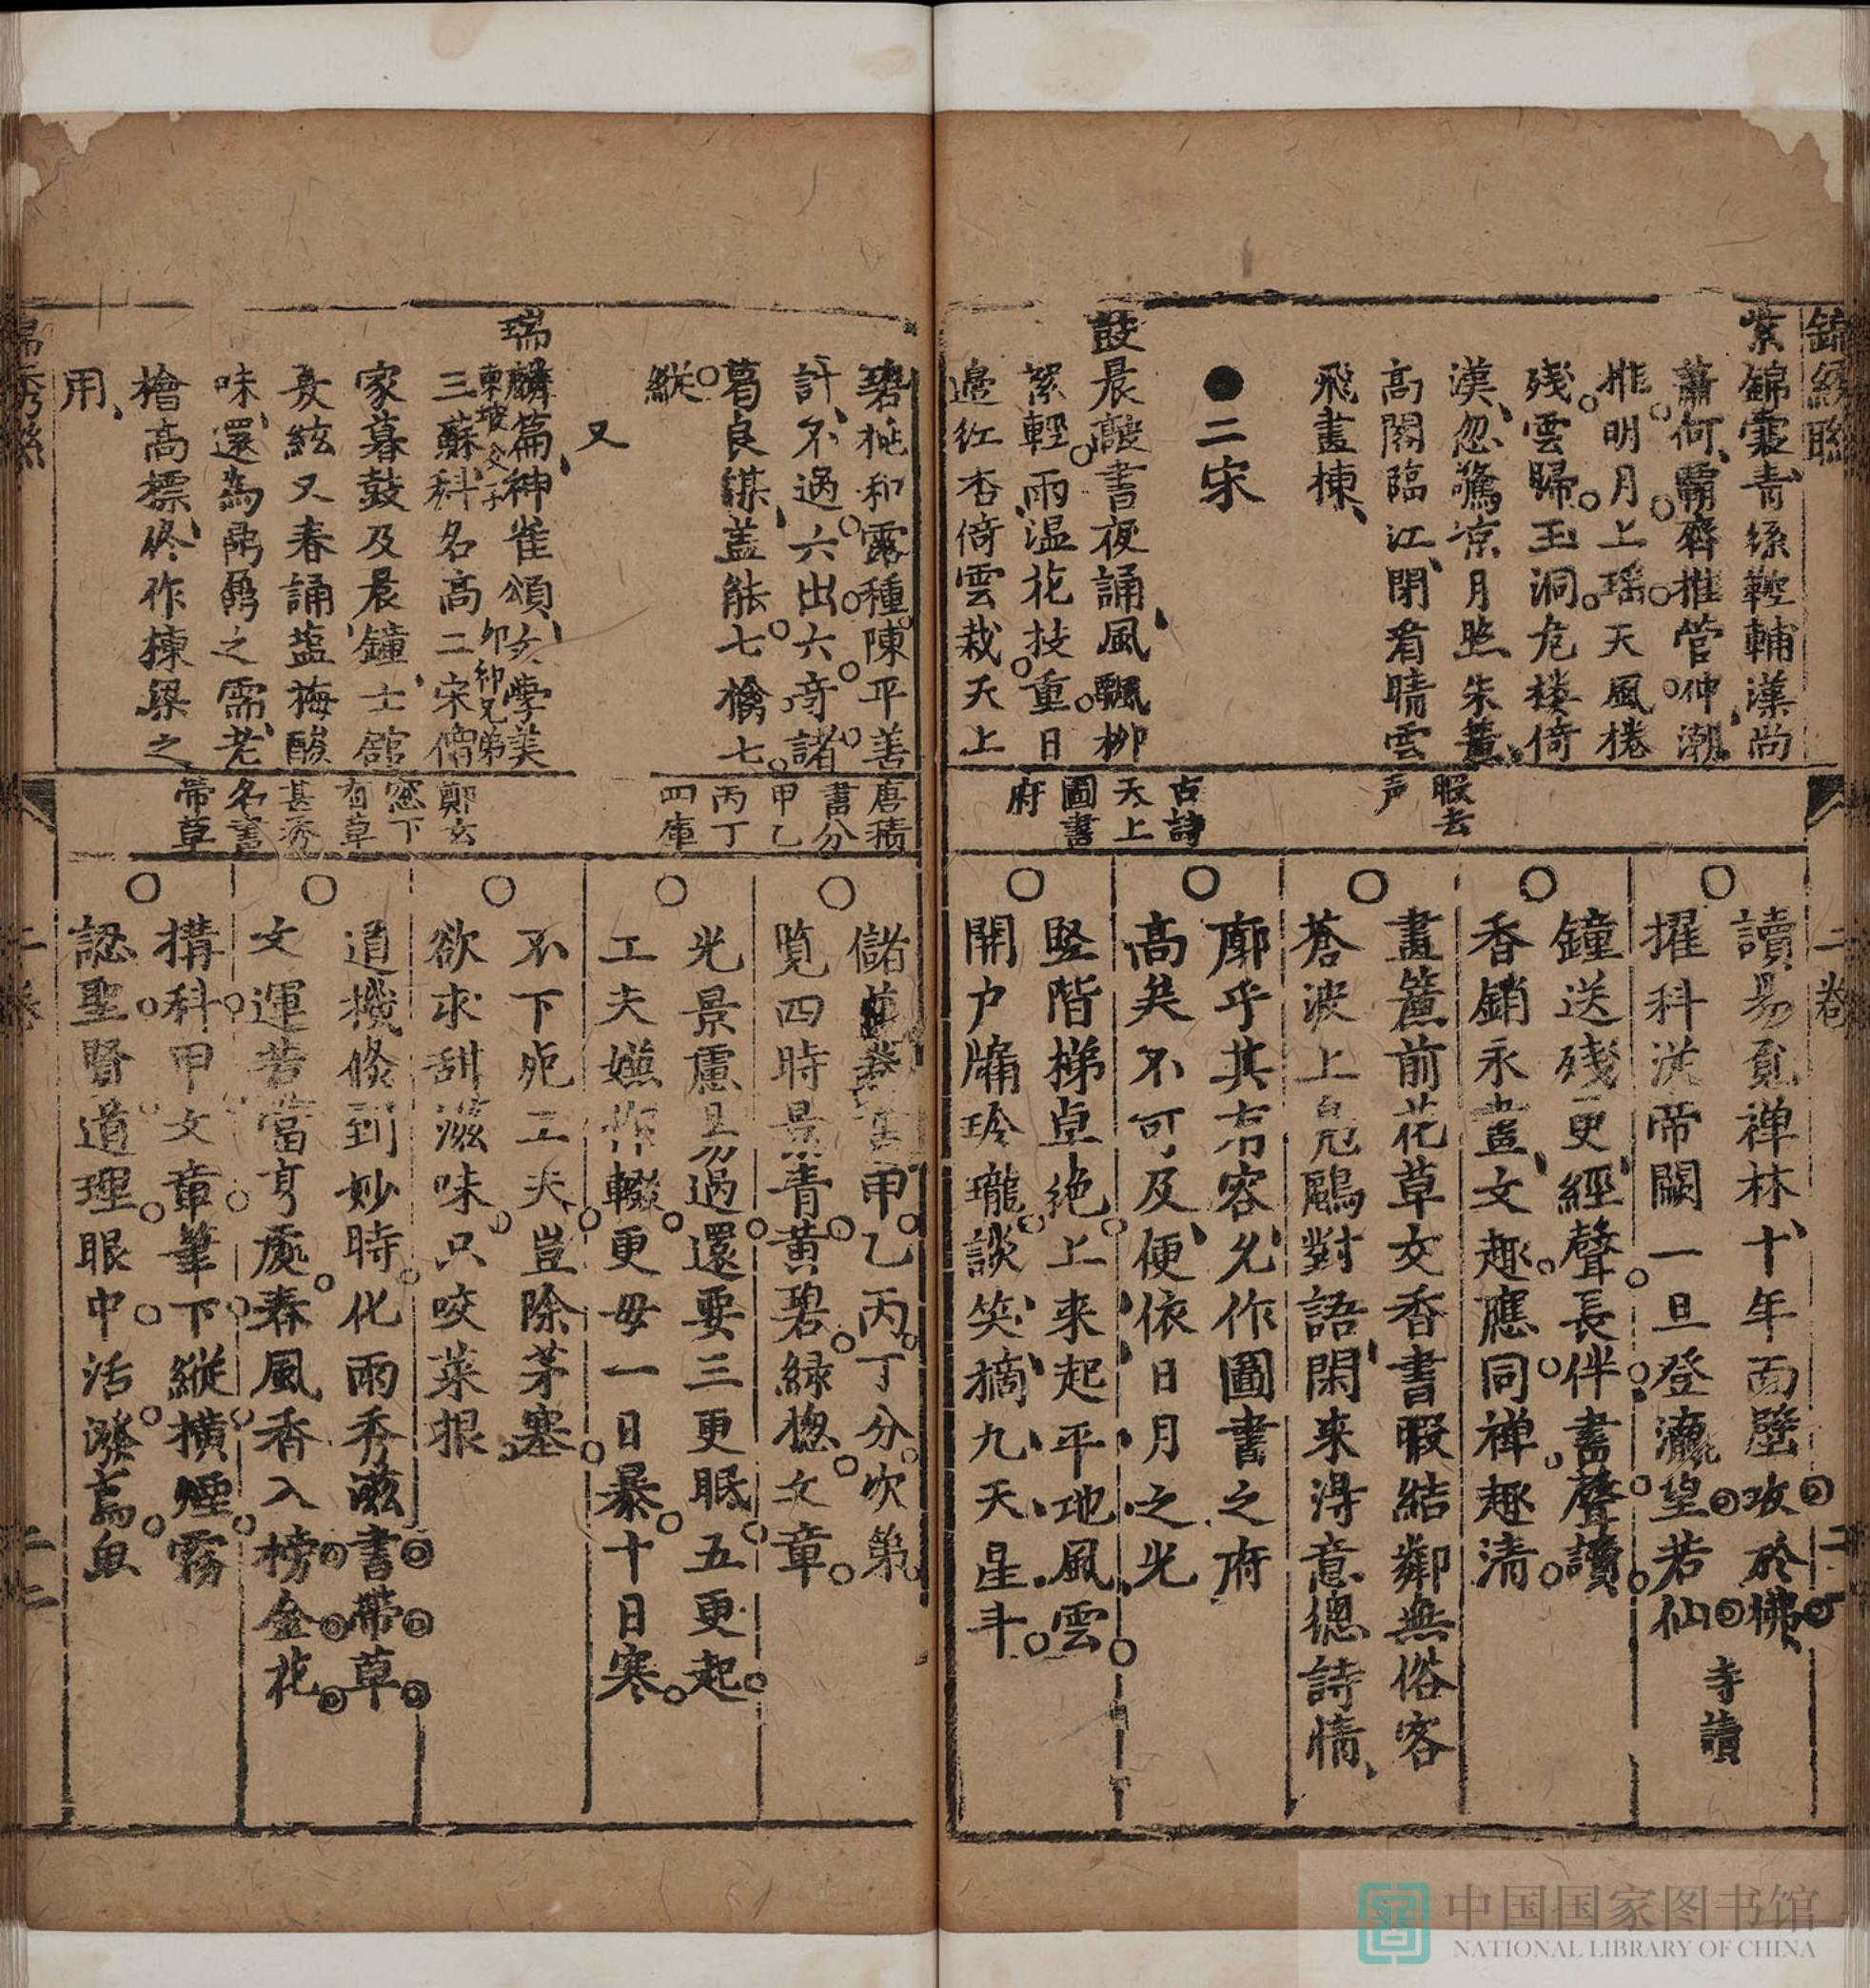 錦繡聯
二卷
紫錦囊青絲鞚輔漢尚
蕭何霸齊推管仲潮
推明月上瑤天風捲
殘雲歸玉洞危楼倚
漢忽驚凉月照朱簷
高閣臨江閒看晴雲
飛畫棟
●二宋
鼓晨醲書夜誦風飄柳
絮輕雨温花技重日
邉紅杏倚雲栽天上
碧桃和露種陳平善
計不過六出六奇諸
葛良謀蓋能七擒七
縱
又
瑞麟篇神雀頌文學美
三蘇東坡父子科名高二宋郊祁兄弟僧
家暮鼓及晨鐘士館
夏絃又春誦盬梅醎
味還為鼎鼐之需老
檜高標終作棟梁之
用
暇去
声
古詩
天上
圖書
府
唐積
書分
甲乙
丙丁
四庫
鄭玄
窓下
有草
甚秀
名書
帶草
○讀易覓禅林十年面壁攻於佛寺讀
擢科沃帝闕一旦登瀛皇若仙
○鐘送殘更經聲長伴書聲讀
香銷永晝文趣應同禅趣清
○畫簷前花草文香書暇結鄰無俗客
蒼波上凫鷗對語閑来淂意德詩情
○廓乎其有容允作圖書之府
高矣不可及便依日月之光
○竪階梯卓絶上来起平地風雲
開户牖玲瓏談笑摘九天星斗
○甲乙丙丁分次第
覧四時景青黄碧緑揔文章
○光景慮易過還要三更眠五更起
工夫嫌作輟更毋一日暴十日寒
○不下死工夫豈除茅塞
欲求刮滋味只咬菜根
○道機倐到妙時化雨秀滋書帶草
文運若當亨處春風香入榜金花
○搆科甲文章筆下縱横煙霧
認聖賢道理眼中活潑鳶魚